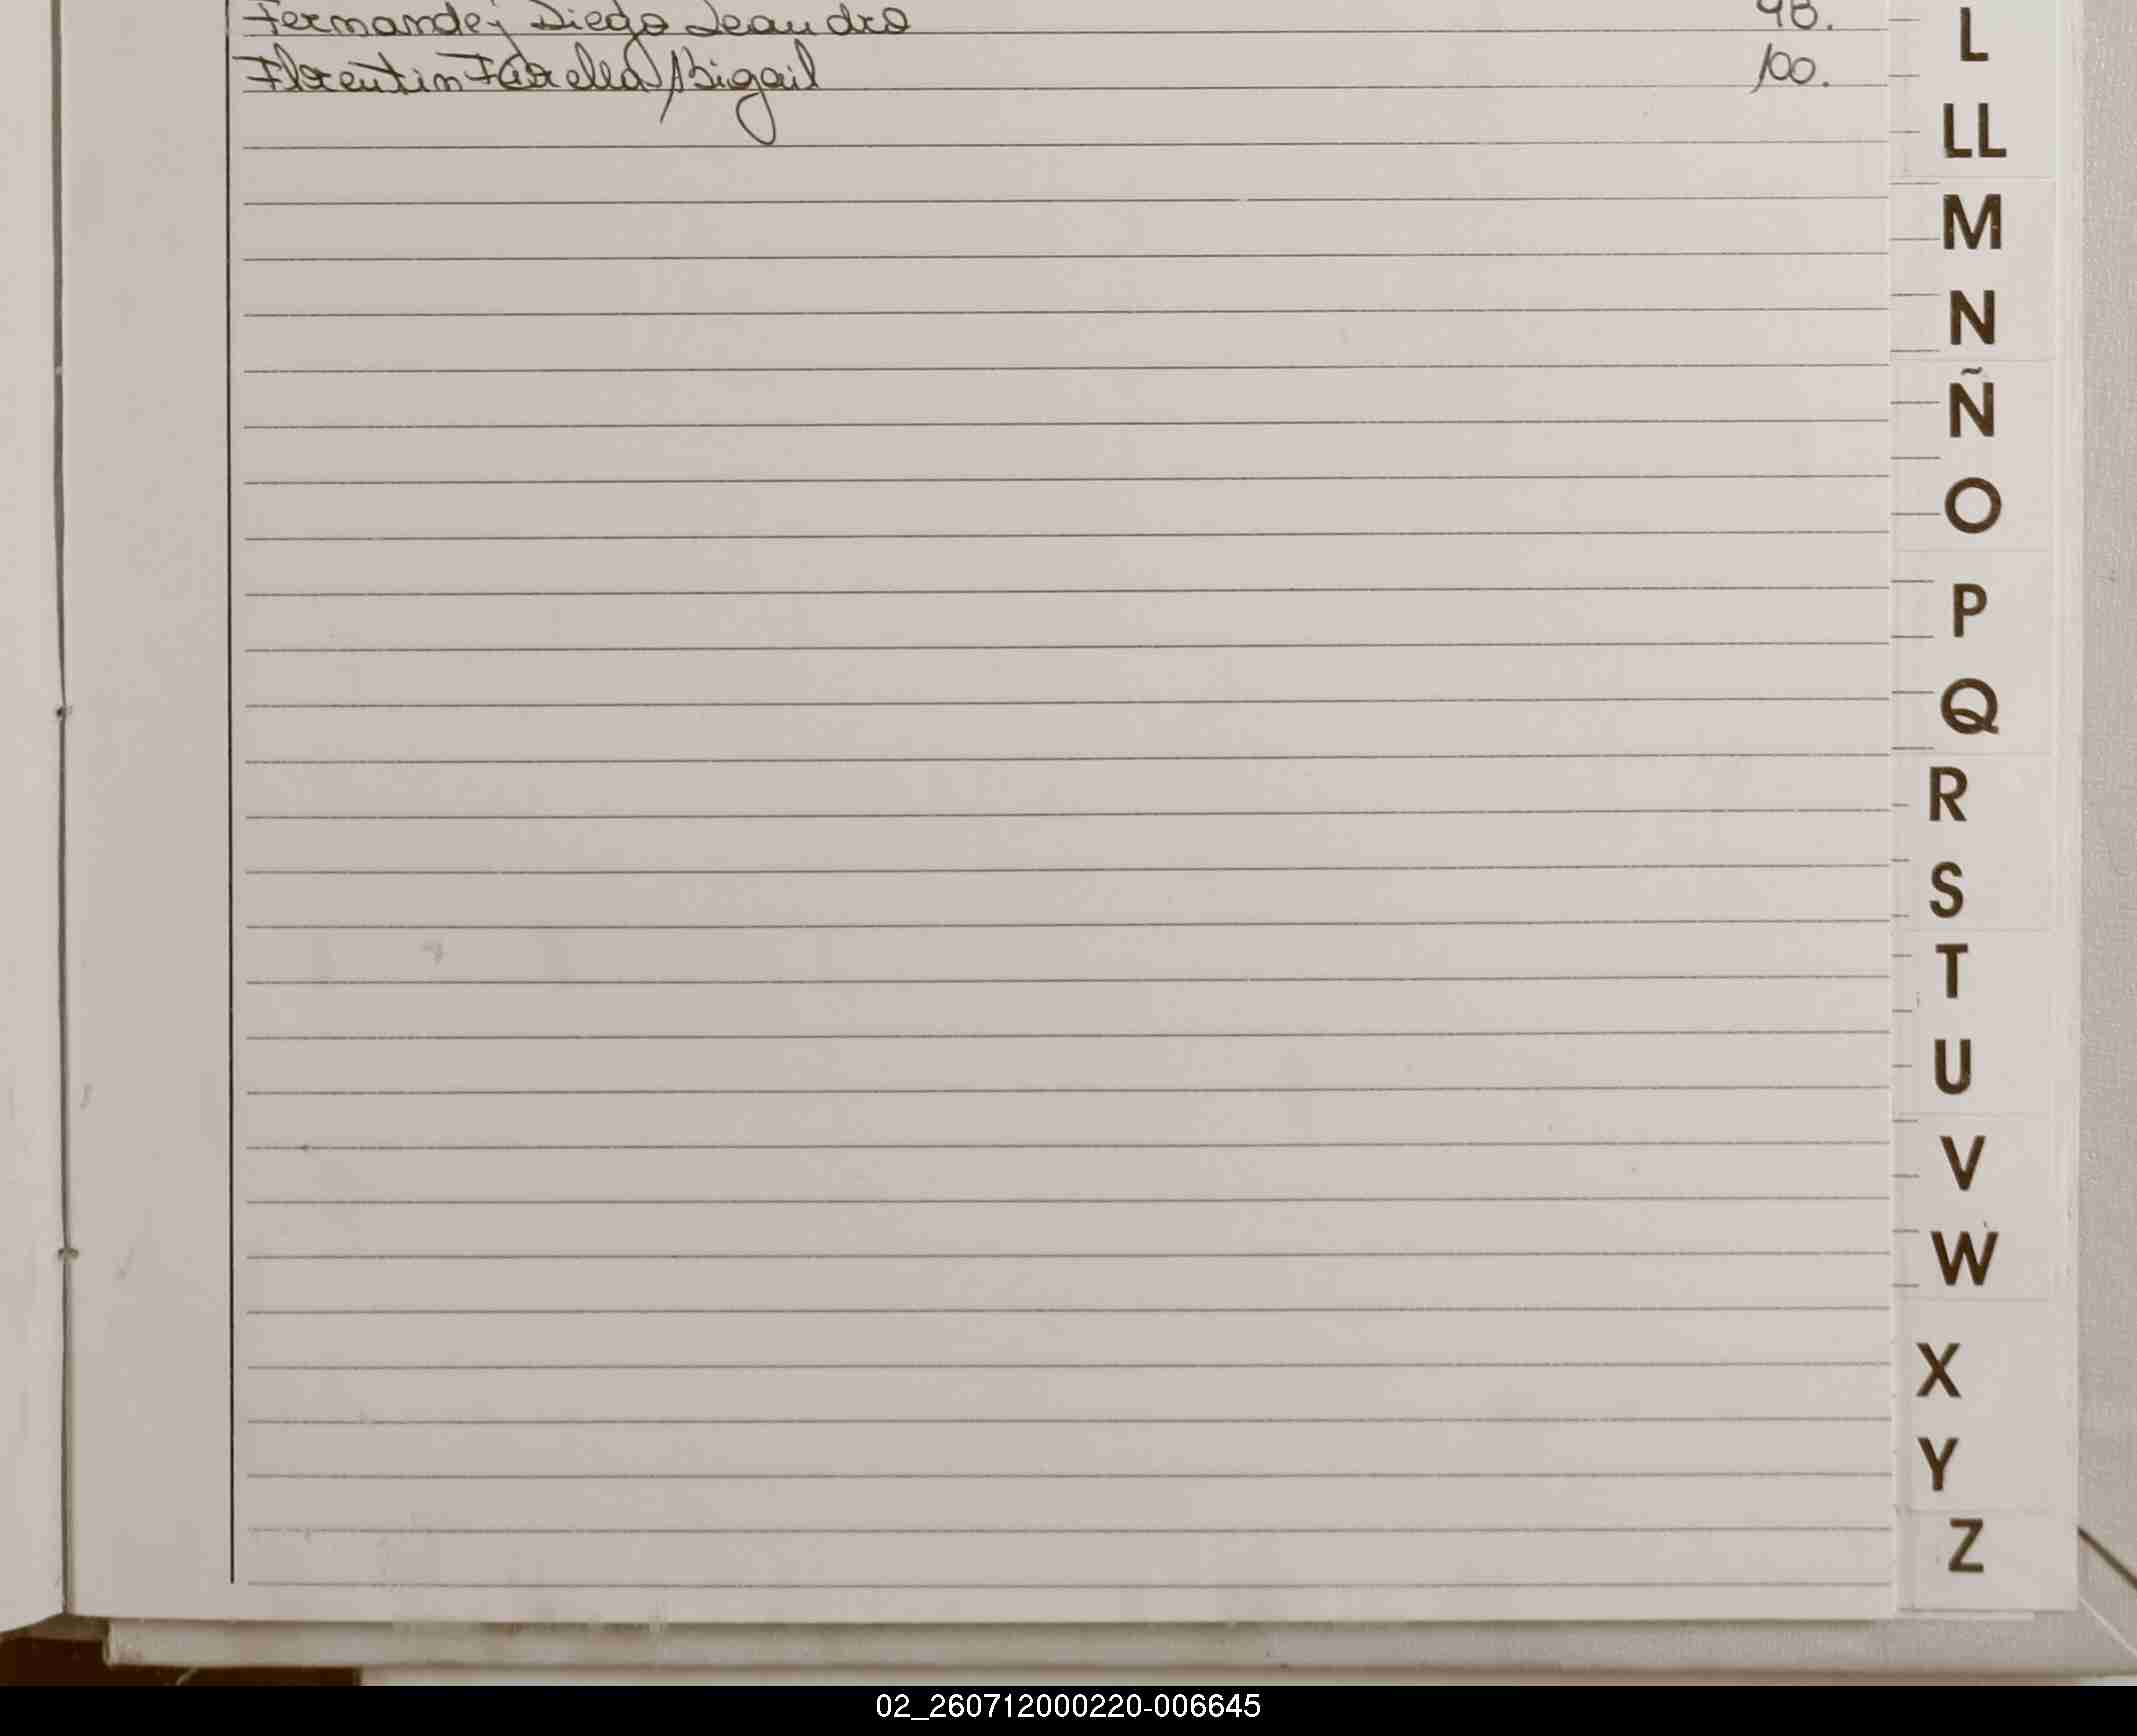 Fernandez Diego Leandro 98.
Florentin Fiorella Abigail 100.
L
LL
M
N
Ñ
O
P
Q
R
S
T
U
V
W
X
Y
Z
02_260712000220-006645